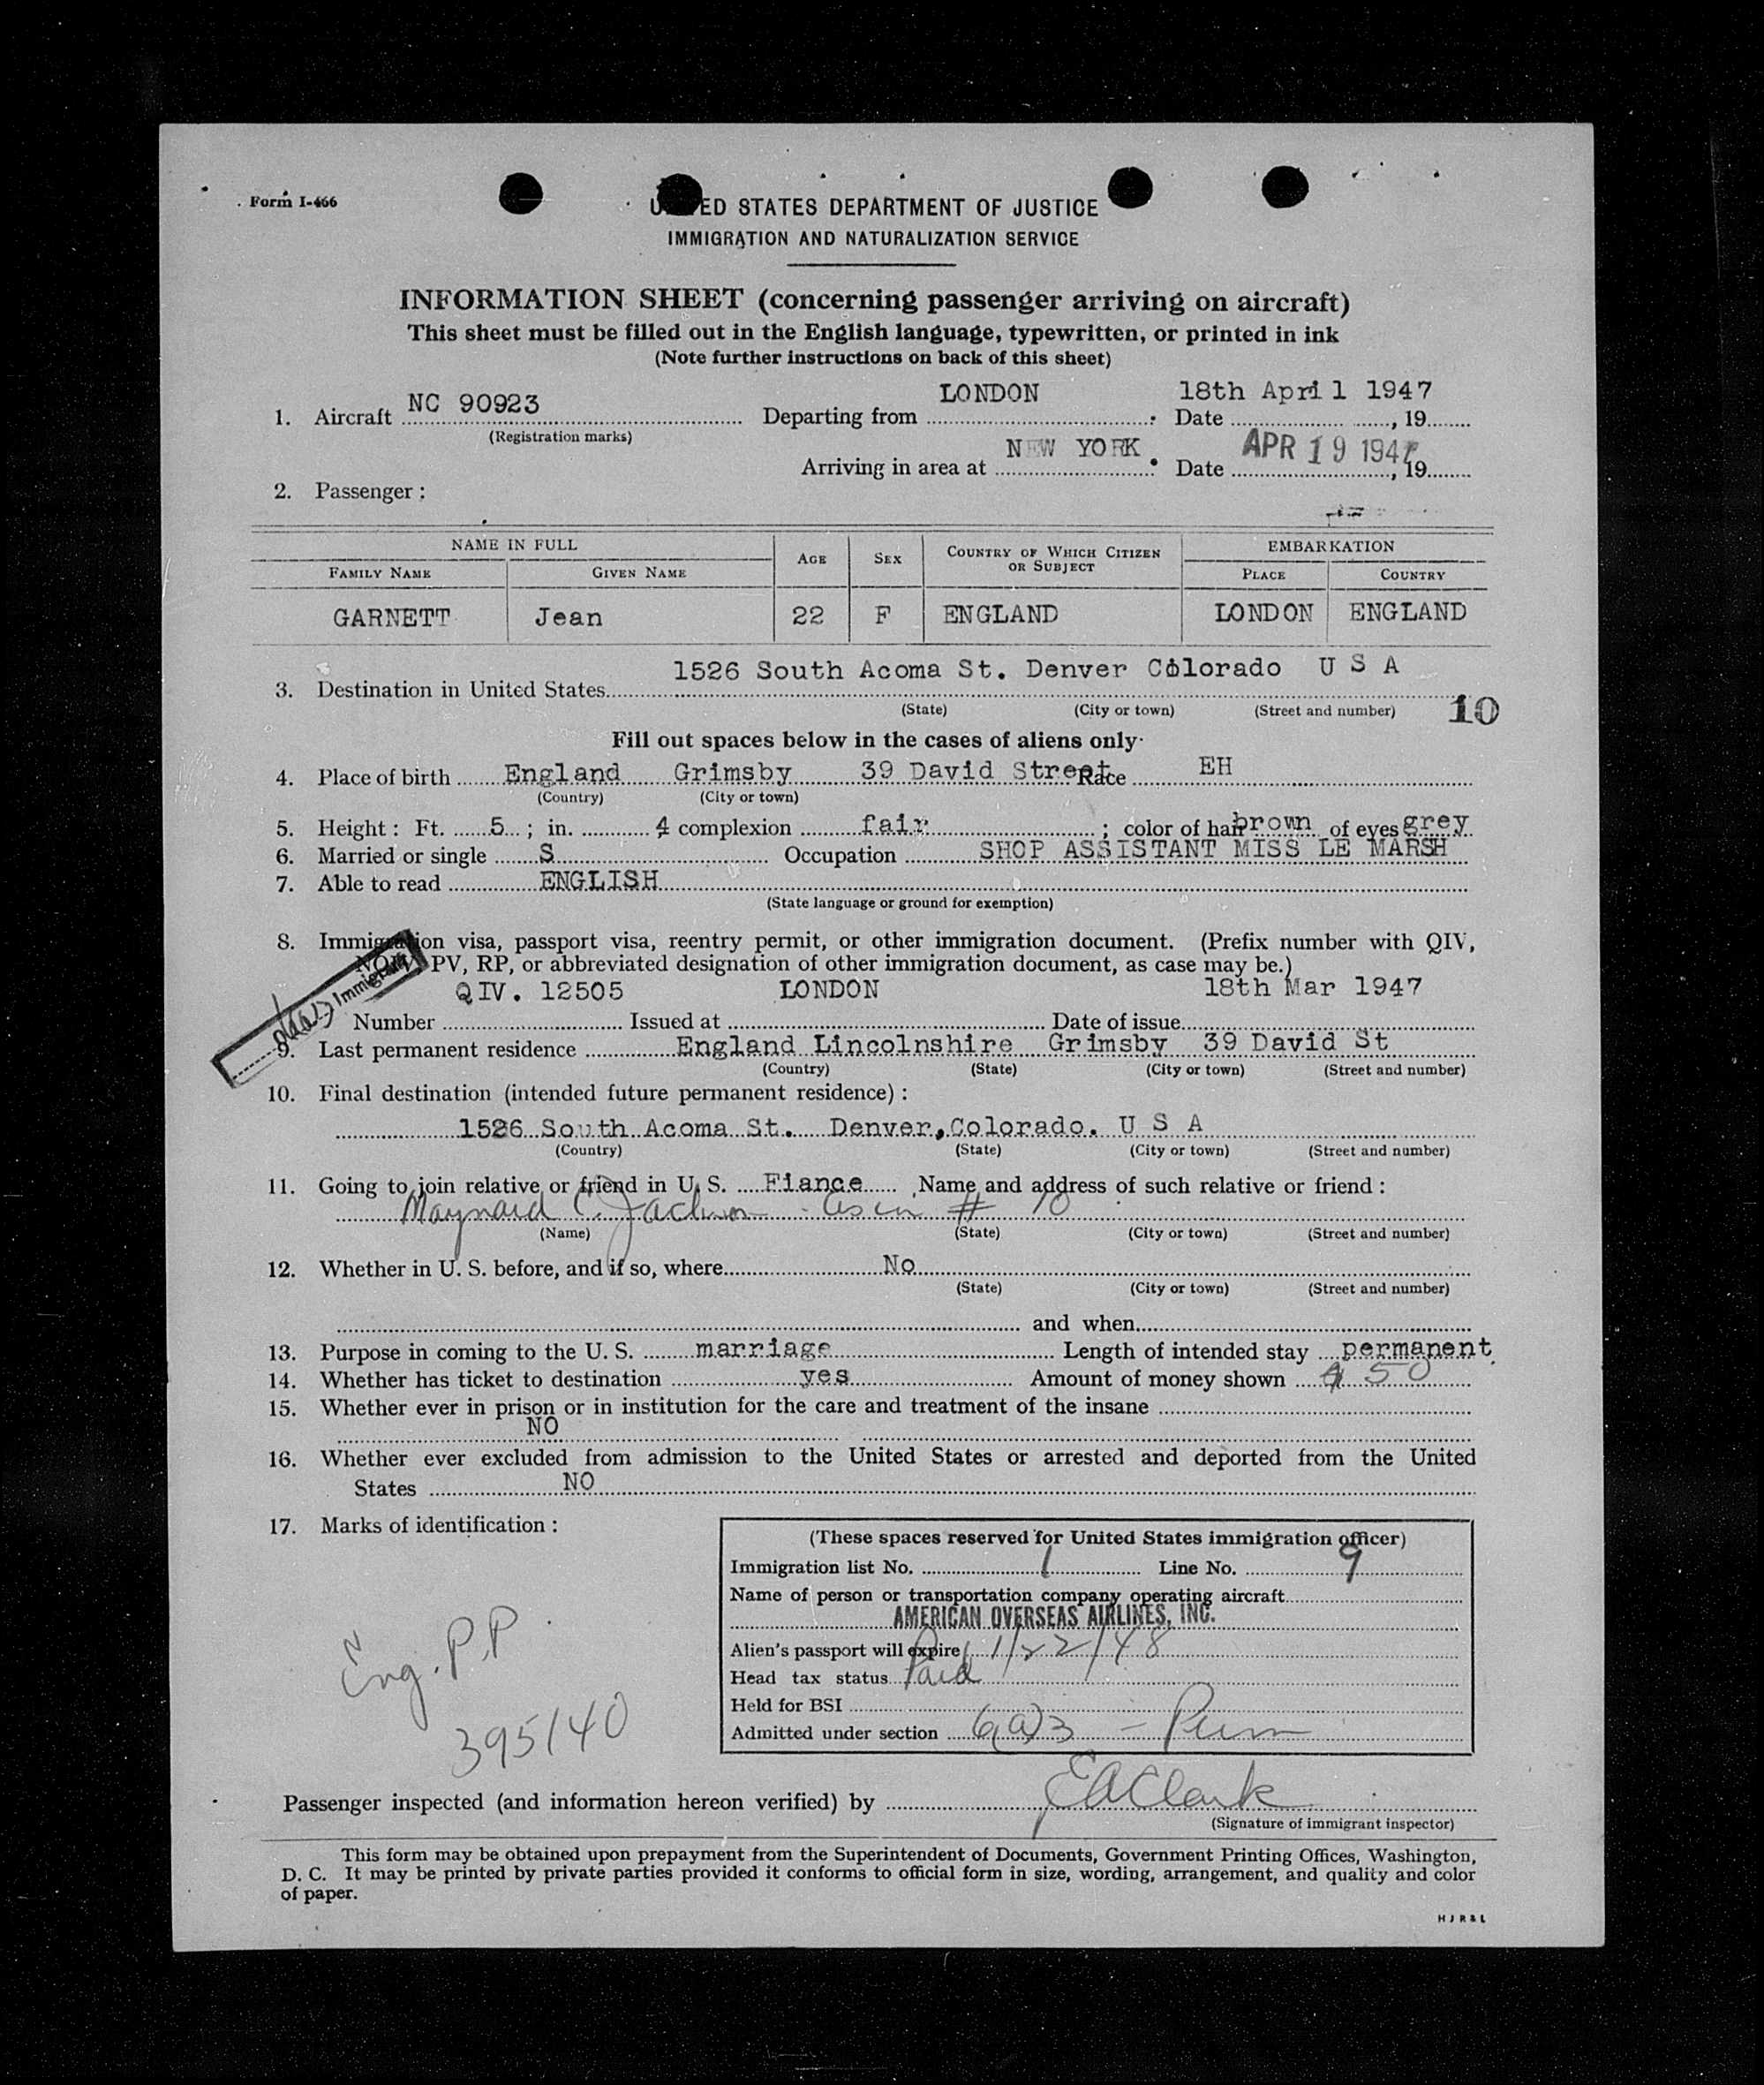 Form I-466
UNITED STATES DEPARTMENT OF JUSTICE
IMMIGRATION AND NATURALIZATION SERVICE
INFORMATION SHEET (concerning passenger arriving on aircraft)
This sheet must be filled out in the English language, typewritten, or printed in ink
(Note further instructions on back of this sheet)
1. Aircraft NC 90923 Departing from LONDON; Date 18th April 1947, 19
(Registration marks)
Arriving in area at NEW YORK. Date APR 19 1947, 19
2. Passenger:
NAME IN FULL AGE SEX COUNTRY OF WHICH CITIZEN OR SUBJECT EMBARKATION
FAMILY NAME GIVEN NAME PLACE COUNTRY
GARNETT Jean 22 F ENGLAND LONDON ENGLAND
3. Destination in United States 1526 South Acoma St. Denver Colorado U S A
(State) (City or town) (Street and number) 10
Fill out spaces below in the cases of aliens only
4. Place of birth England Grimsby 39 David Street Race EH
(Country) (City or town)
5. Height: Ft. 5; in. 4 complexion fair; color of hair brown of eyes grey
6. Married or single S Occupation SHOP ASSISTANT MISS LE MARSH
7. Able to read ENGLISH
(State language or ground for exemption)
8. Immigration visa, passport visa, reentry permit, or other immigration document. (Prefix number with QIV,
NQIV, PV, RP, or abbreviated designation of other immigration document, as case may be.)
Immigrant
Number QIV. 12505 Issued at LONDON Date of issue 18th Mar 1947
9. Last permanent residence England Lincolnshire Grimsby 39 David St
(Country) (State) (City or town) (Street and number)
10. Final destination (intended future permanent residence):
1526 South Acoma St. Denver, Colorado. U S A
(Country) (State) (City or town) (Street and number)
11. Going to join relative or friend in U. S. Fiance Name and address of such relative or friend:
Maynard C. Jackson - as in # 10
(Name) (State) (City or town) (Street and number)
12. Whether in U. S. before, and if so, where No
(State) (City or town) (Street and number)
and when
13. Purpose in coming to the U. S. marriage Length of intended stay permanent
14. Whether has ticket to destination yes Amount of money shown $ 50
15. Whether ever in prison or in institution for the care and treatment of the insane
NO
16. Whether ever excluded from admission to the United States or arrested and deported from the United
States NO
17. Marks of identification:
Eng. P.P.
395140
(These spaces reserved for United States immigration officer)
Immigration list No. 1 Line No. 9
Name of person or transportation company operating aircraft
AMERICAN OVERSEAS AIRLINES, INC.
Alien's passport will expire 1/22/48
Head tax status Paid
Held for BSI
Admitted under section 6(a)3 - Perm
Passenger inspected (and information hereon verified) by E A Clark
(Signature of immigrant inspector)
This form may be obtained upon prepayment from the Superintendent of Documents, Government Printing Offices, Washington,
D. C. It may be printed by private parties provided it conforms to official form in size, wording, arrangement, and quality and color
of paper.
H J R & L